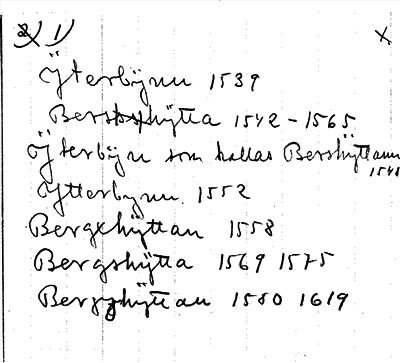 2) 1) x
Ÿterbÿnn 1539
Bersshÿtta 1542-1565
Ÿterbÿn som kallas Bersshÿttann
1548
Ytterbynn 1552
Bergxhÿttan 1558
Bergshÿtta 1569 1575
Bergzhÿttan 1580 1619